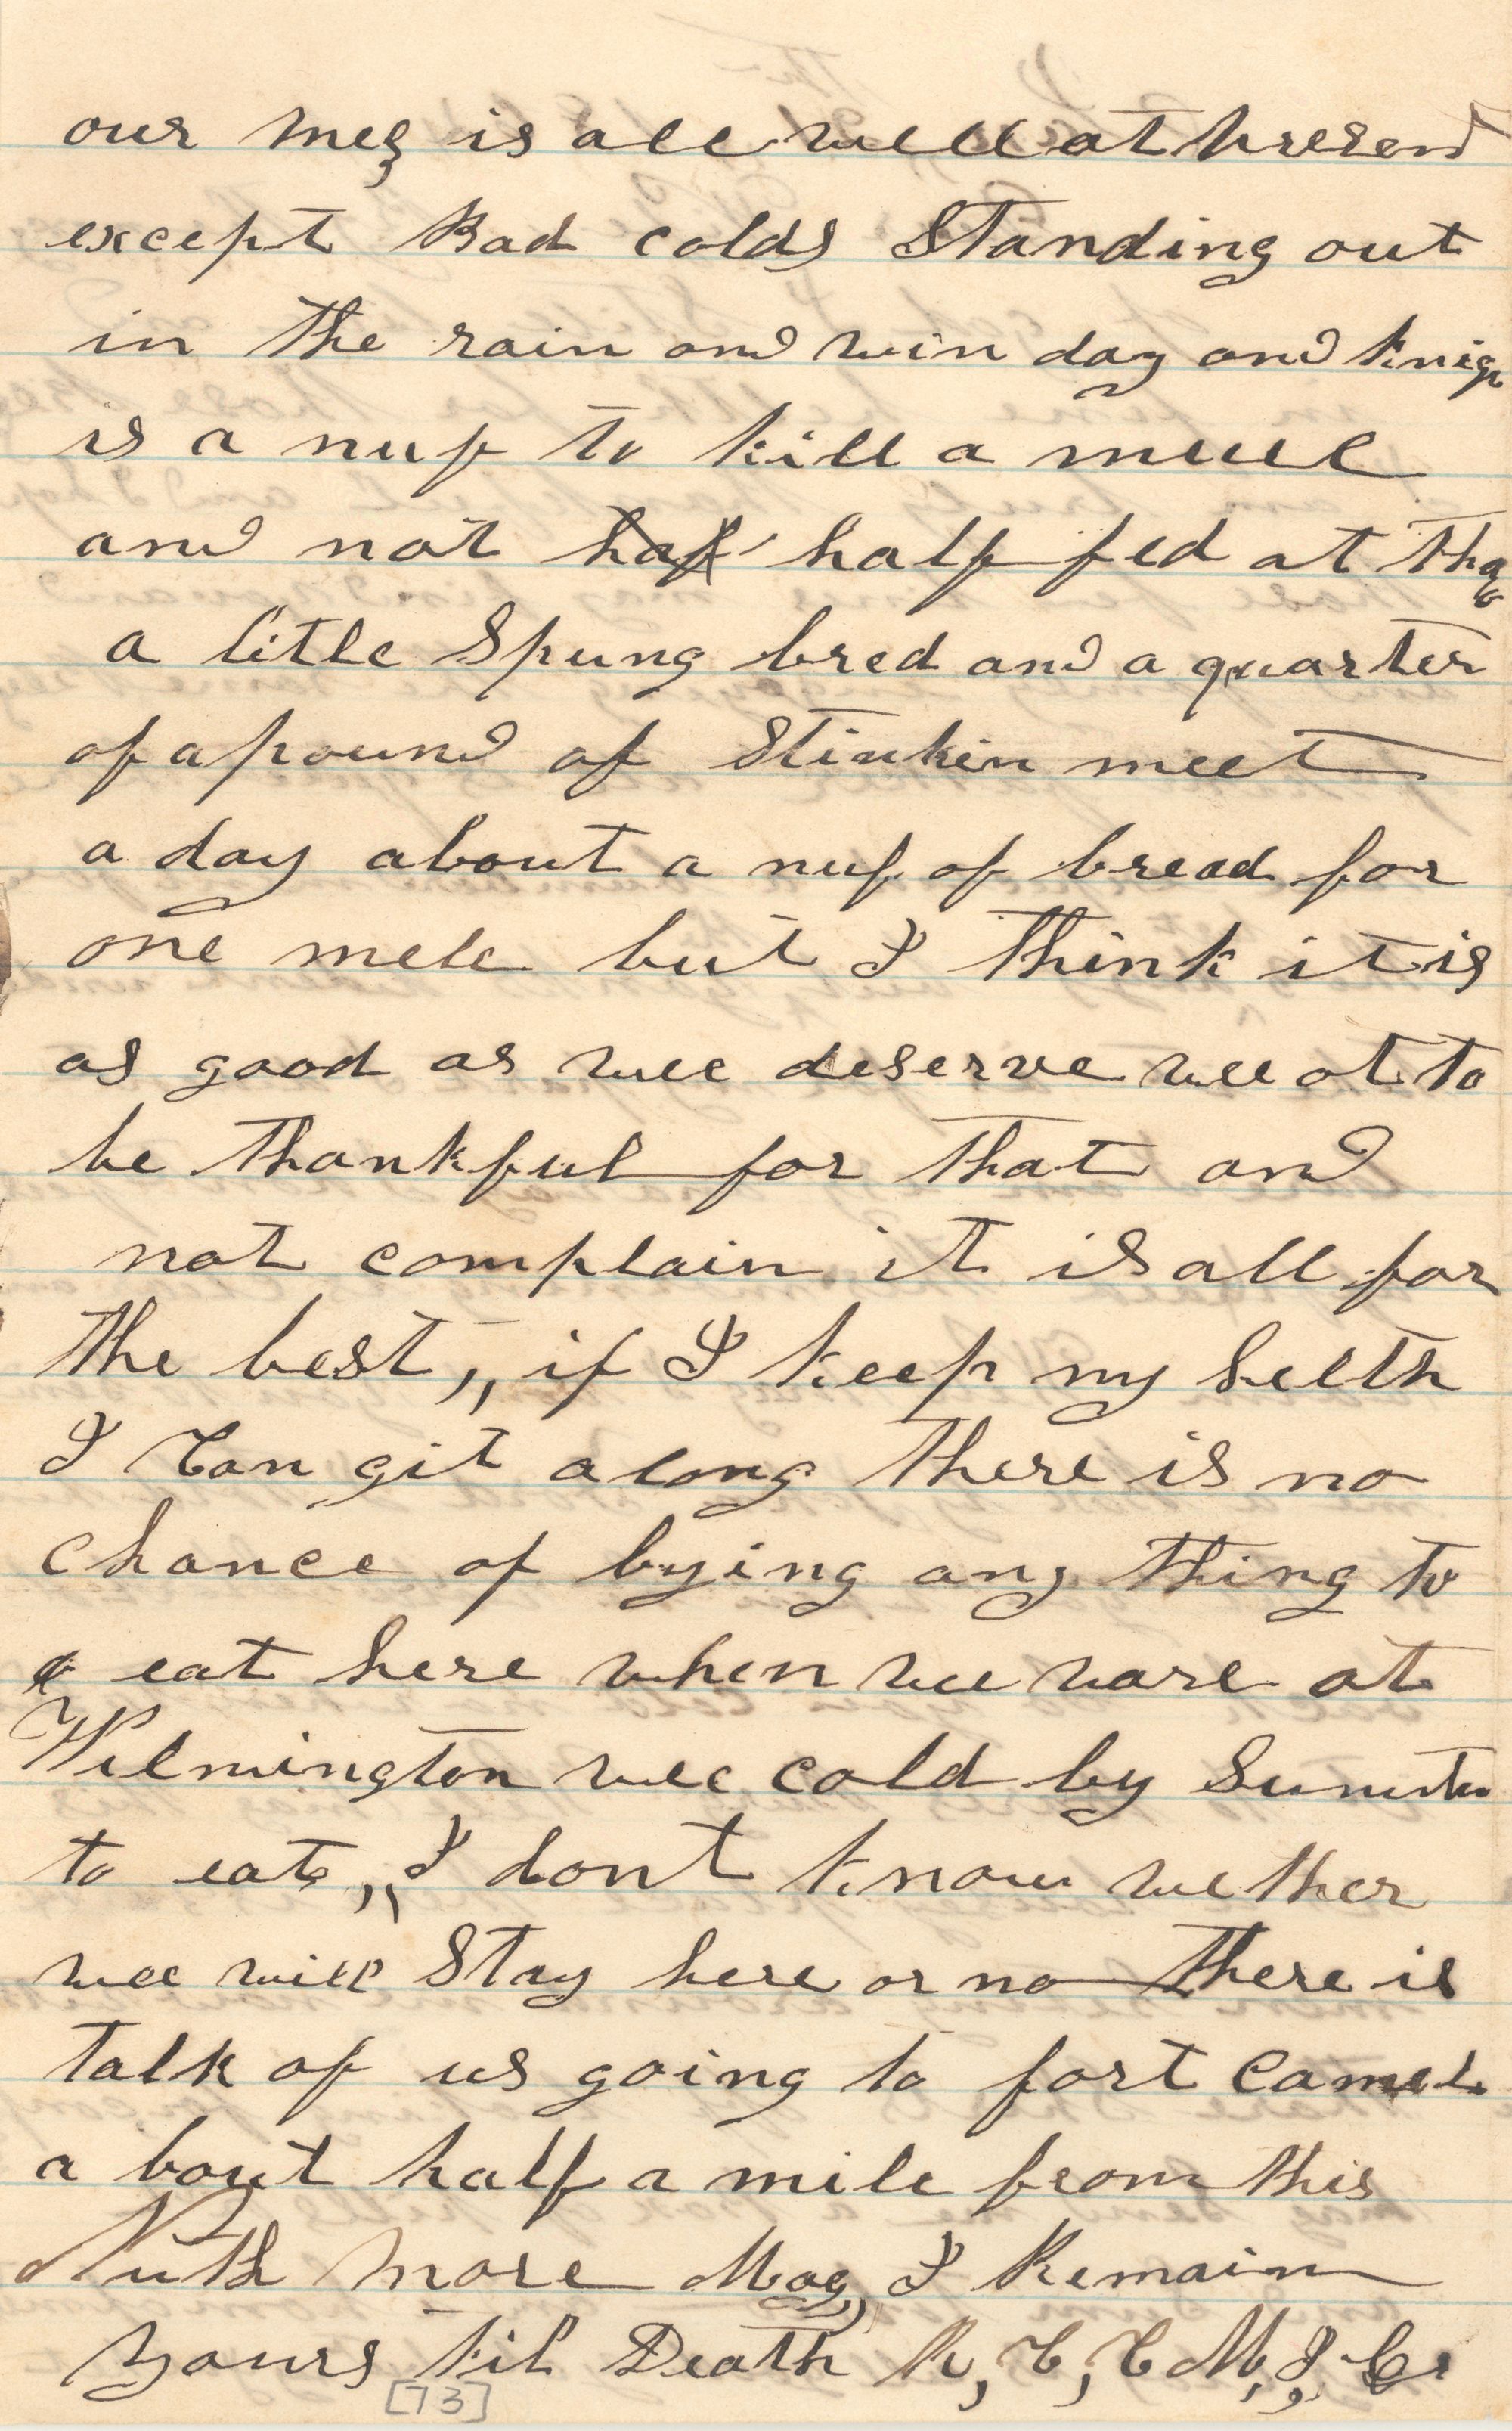 our mess is all well at presend
except Bad colds Standing out
in the rain and win day and knig
is a nuf to kill a muel
and not haf half fed at tha
a little Spung bred and a quarter
of a pound of Stinkin meet
a day about a nuf of bread for
one mele but I think it is
as good as wee deserve wee ot to
be thankful for that and
not complain it is all for
the best,, if I keep my helth
I Can git along there is no
chance of bying any thing to
eat here when wee ware at
Wilmington wee cold by Sumthn
to eat,, I dont know wether
wee will Stay here or no there is
talk of us going to fort Camel
a bout half a mile from this
Nuth more Mag, I Remain
yours til Death R, C, C M, I, Co
[73]